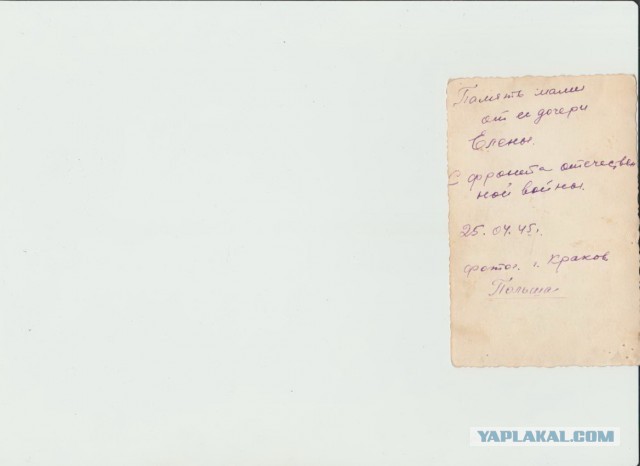 Память маме
от ее дочери
Елены.
С фронта отечествен
ной войны.
25.04.45г.
фото г. Краков
Польша
YAPLAKAL.COM